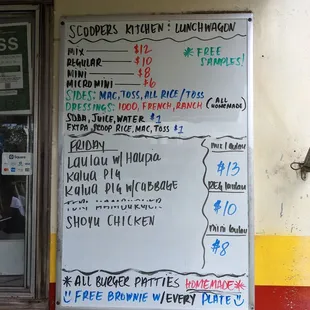 SCOOPERS KITCHEN: LUNCHWAGON
MIX $12
REGULAR $10
MINI $8
MICROMINI $6
* FREE
SAMPLES!
SIDES: MAC, TOSS, ALL RICE/TOSS
DRESSINGS: 1000, FRENCH, RANCH (ALL HOMEMADE)
SODA, JUICE, WATER $1
EXTRA SCOOP RICE, MAC, TOSS $1
FRIDAY
LAULAU W/ HAUPIA
KALUA PIG
KALUA PIG W/CABBAGE
TERI HAMBURGER
SHOYU CHICKEN
MIX laulau
$13
REG laulau
$10
mini laulau
$8
*ALL BURGER PATTIES HOMEMADE*
FREE BROWNIE W/EVERY PLATE
Square